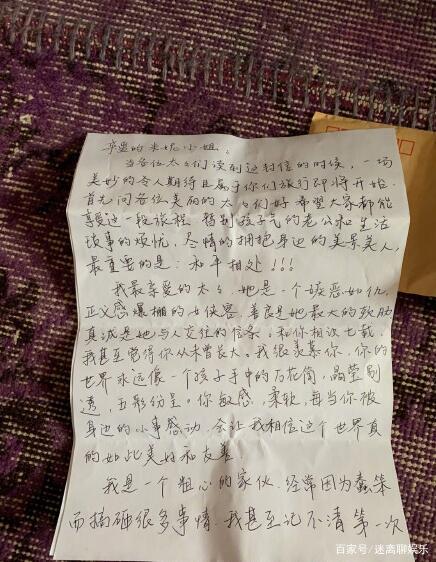 亲爱的米妮小姐,
当各位太太们读到这封信的时候,一场
美妙的令人期待且属于你们旅行即将开始.
首先问各位美丽的太太们好希望大家都能
享受这一段旅程 暂别孩子气的老公和生活
琐事的烦忧,尽情的拥抱身边的美景美人,
最重要的是:和平相处!!!
我最亲爱的太太 她是一个嫉恶如仇,
正义感爆棚的女侠客 善良是她最大的软肋
真诚是她与人交往的信条,和你相识七载,
我甚至觉得你从未曾长大。我很羡慕你,你的
世界永远像一个孩子手中的万花筒,晶莹剔
透,五彩纷呈。你敏感,柔软,每当你被
身边的小事感动,会让我相信这个世界真
的如此美好和友善!
我是一个粗心的家伙,经常因为蠢笨
而搞砸很多事情,我甚至记不清第一次
百家号/迷离聊娱乐